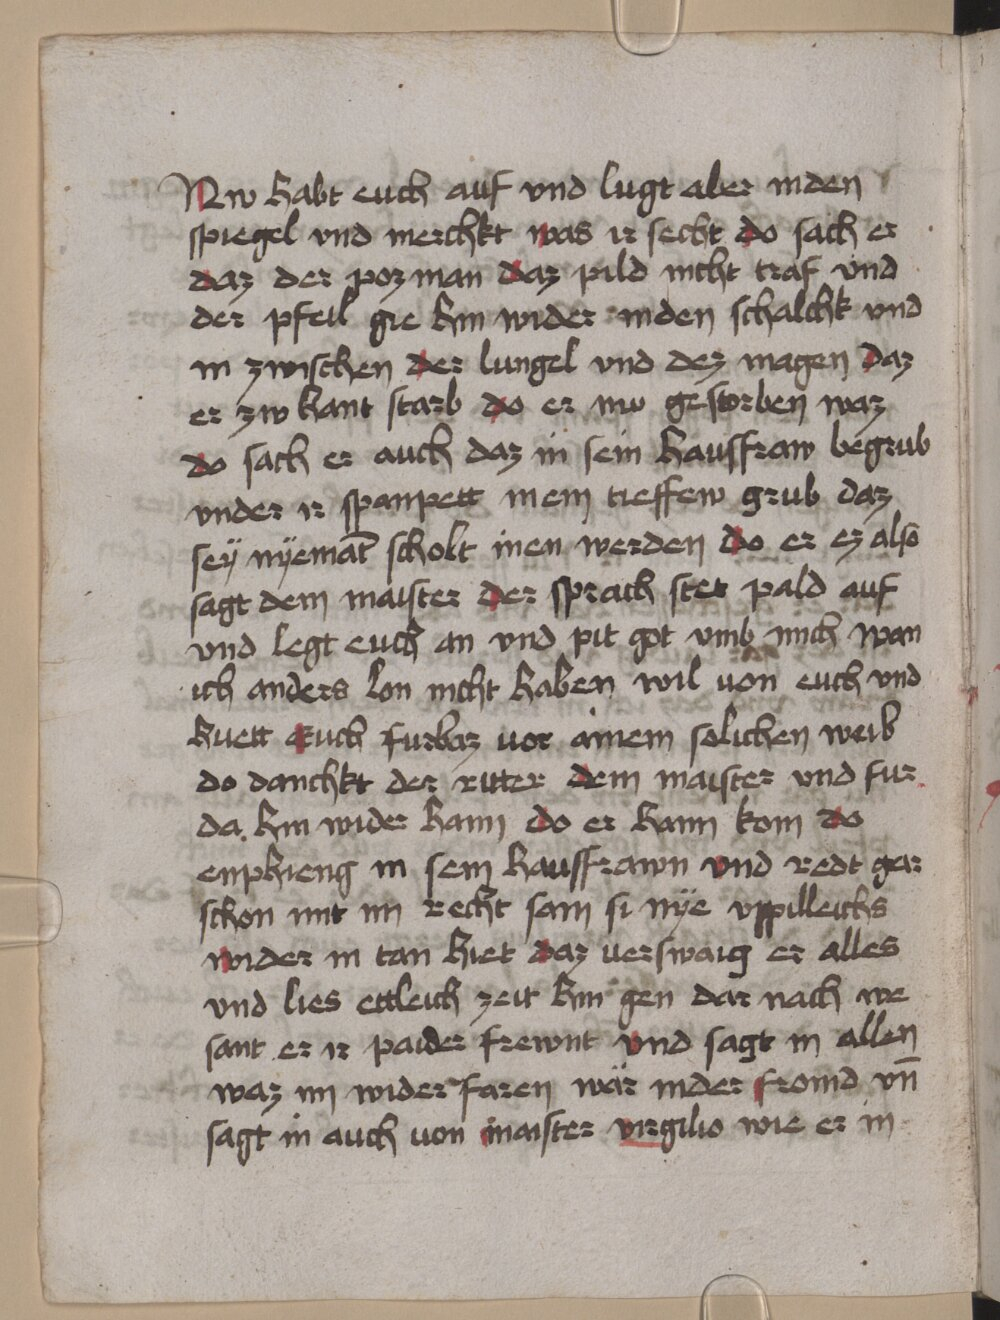 Nw habt euch auf vnd lugt aber inden
spiegel vnd merchkt was ir secht do sach er
daz der poz man daz pild nicht traf vnd
der pfeil gie hin wider inden schalchk vnd
in zwischen der lungel vnd dez magen daz
er zw hant starb do er nw gestorben waz
do sach er auch daz in sein hausfraw begrub
vnder ir spanpett in ein tieffew grub daz
seÿ nÿemãt scholt inen werden do er ez also
sagt dem maister der sprach stet pald auf
vnd legt euch an vnd pit got vmb mich wan
ich anders lon nicht haben wil von euch vnd
huett euch furbaz vor ainem solichen weib
do danchkt der ritter dem maister vnd fur
da hin wider haim do er haim kom do
enphieng in sein hausfrawn vnd redt gar
schon mit im recht sam si nÿe vppilleichs
wider in tan hiet daz verswaig er alles
vnd lies ettleich zeit hin gen dar nach we
sant er ir paider frewnt vnd sagt in allen
waz im wider faren wär inder fromd vñ
sagt in auch von maister virgilio wie er in